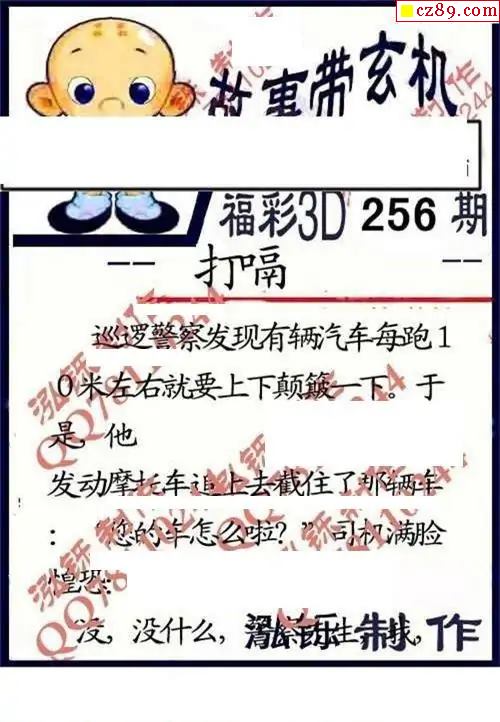 cz89.com
故事带玄机
福彩3D 256 期
-- 打嗝 --
巡逻警察发现有辆汽车每跑1
0米左右就要上下颠簸一下。于
是,他
发动摩托车追上去截住了那辆车
:“您的车怎么啦?”司机满脸
惶恐:
没,没什么, 生,我,
泓铄 制 作